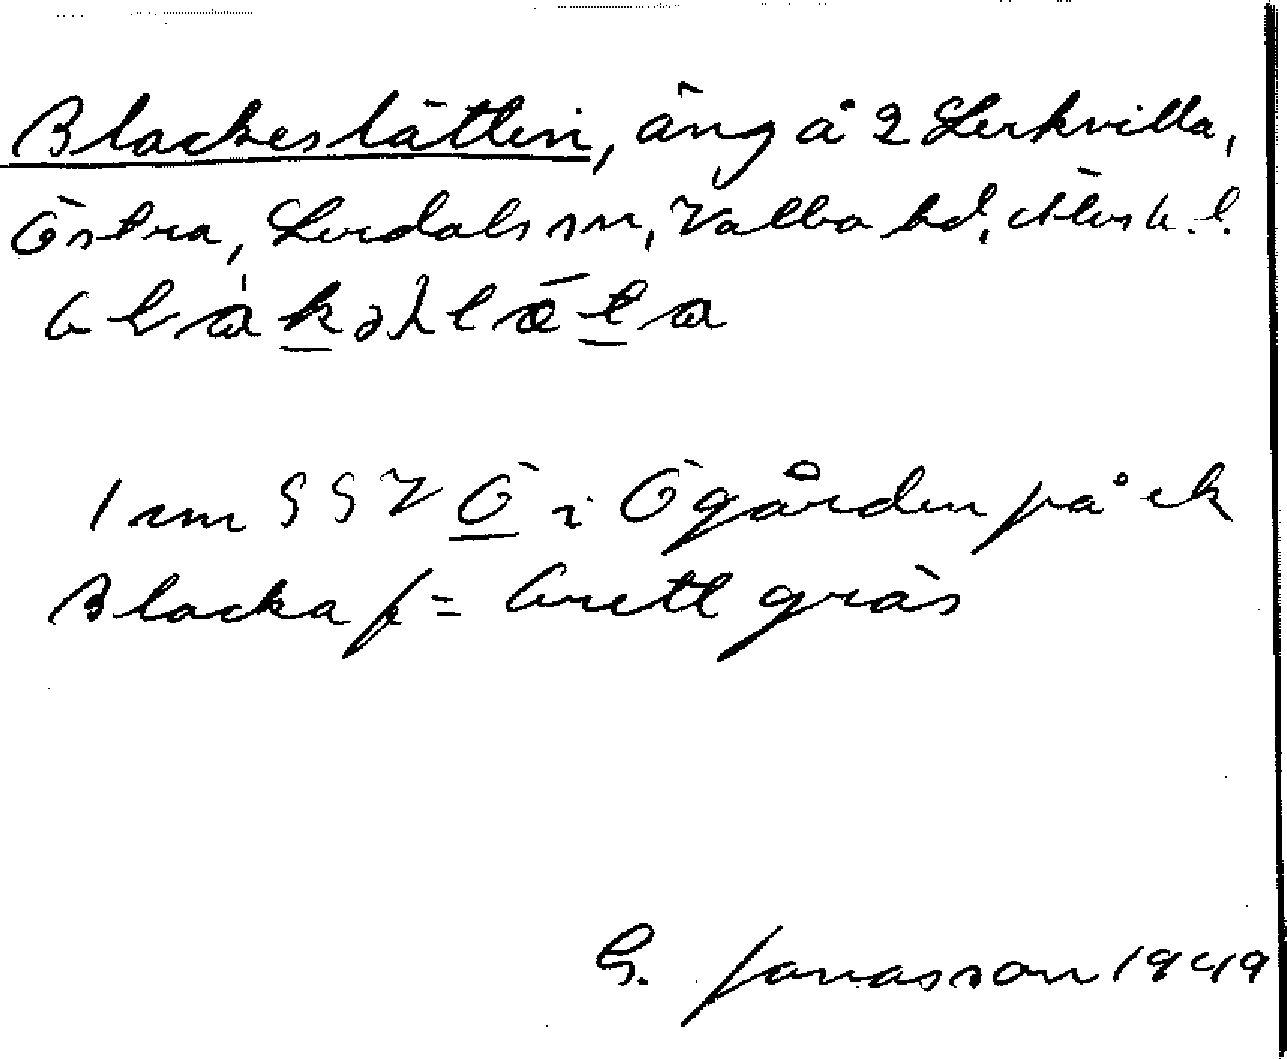 Blackeslätten, äng å 2 Lerkvilla,
Östra, Lerdals sn, Valbo hd,
1 cm SSV Ö i Ögården på ek
Blacka f = brett gräs
G. Jonasson 1949